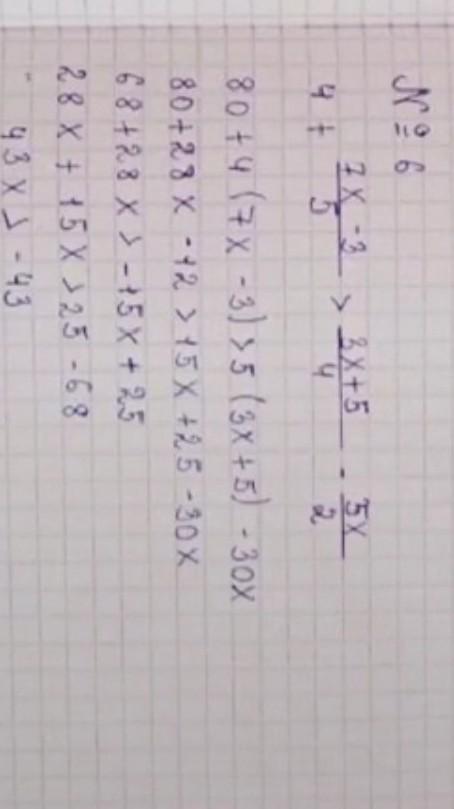 № 6
4 + \frac{7x-3}{5} > \frac{3x+5}{4} - \frac{3x}{2}
80+4(7x-3)>5(3x+5)-30x
80+28x-12>15x+25-30x
68+28x>-15x+25
28x+15x>25-68
43x>-43